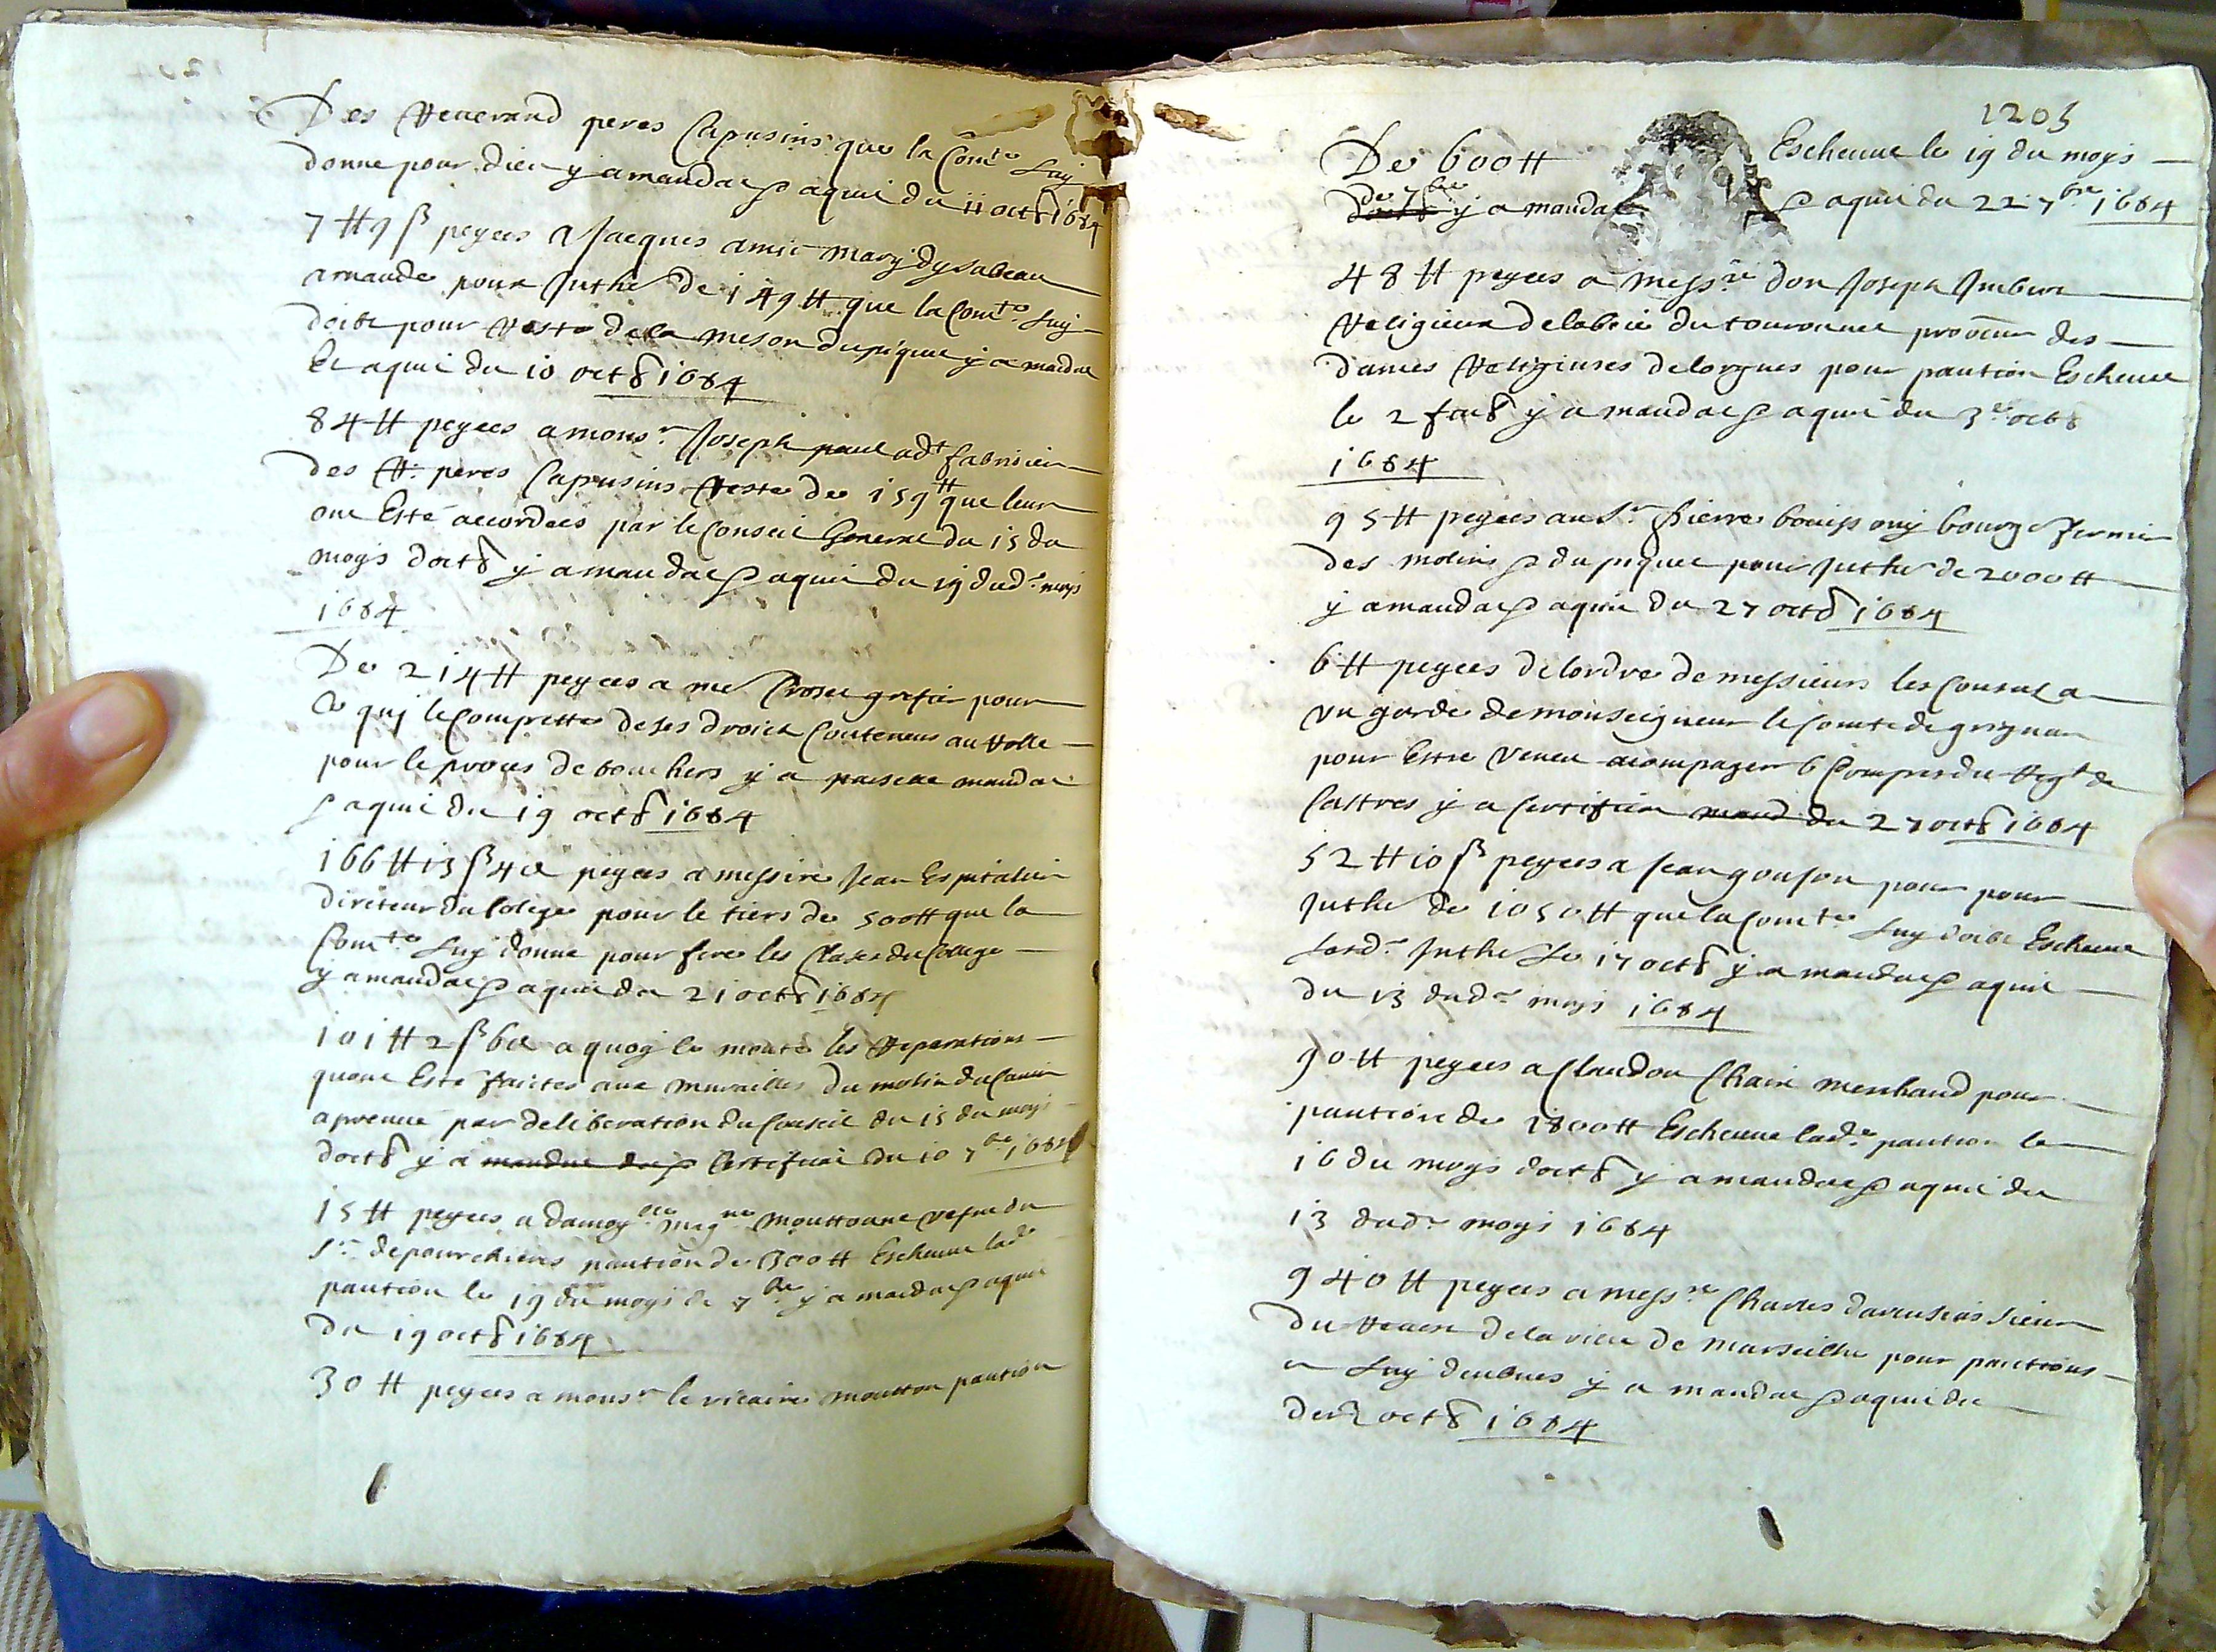 Des Reverand peres Capusins que la Com.te Luy
donne pour dieu y a mandat et aquit du 11 oct8 1684
7 tt 9 ß peyees a Jacques amic mary dysabeau
arnaude pour Juthe de 149 tt que la Com.te Luy
doibt pour Reste de la meson du piquet y a mandat
Et aquit du 10 oct8 1684
84 tt peyees a mons.r Joseph paul adt fabrisien
des R. peres Capusins Reste de 159 tt que leur
ont Esté accordees par le Conseil General du 15 du
moys doct8 y a mandat et aquit du 19 dud. moys
1684
De 214 tt peyees a me greffier pour
Ce quj le Comprette de ses droicts Conteneus au Rolle
pour le proces de bouchers y a mandat
et aquit du 19 oct8 1684
166 tt 13 ß 4 d peyees a messire Jean Espitalier
direteur du Colege pour le tiers de 500 tt que la
Com.te Luy donne pour fere les Clases du College
y a mandat et aquit du 21 oct8 1684
101 tt 2 ß 6 d a quoy le monte les Reparations
quont Esté faictes aux murailles du molin du
aprouue par deliberation du Conseil du 15 du moys
doct8 y a mandat Certificat du 10 7bre 1684
15 tt peyees a damoy.lle mag.ne mouttonne vefue du
s.r de pourchieres pantion de 300 tt Escheue lad.
pantion le 19 du moys de 7bre y a mandat et aquit
du 19 oct8 1684
30 tt peyees a mons.r le vicaire moutton pantion
1205
De 600 tt Escheue le 19 du moys
de 7bre y a mandat et aquit du 22 7bre 1684
48 tt peyees a mess.re don Joseph Jmbert
Religieux de labeie du touronnet des
dames Religieuses de lorgues pour pantion Escheue
le 2 y a mandat et aquit du 3e oct8
1684
95 tt peyees au s.r Pierre bourg.s fermier
des molins du piquet pour Juthe de 2000 tt
y a mandat et aquit du 27 oct8 1684
6 tt peyees de lordre de messieurs les Consuls a
vn garde de monseigneur le Comte de grignan
pour Estre veneu acompager 6 Comp du Regt de
Castres y a Certificat mand du 27 oct8 1684
52 tt 10 ß peyees a Jean gouson pour pour
Juthe de 1050 tt que la Com.te Luy doibt Escheue
Lesd. Juthe Le 17 oct8 y a mandat et aquit
du 13 dud. moys 1684
90 tt peyees a Claudou Chaix merchand pour
pantion de 1800 tt Escheue lad.e pantion le
16 du moys doct8 y a mandat et aquit du
13 dud. moys 1684
940 tt peyees a mess.re Charles sieur
du de la ville de marseille pour pantions
a Luy deubues y a mandat et aquit du
oct8 1684